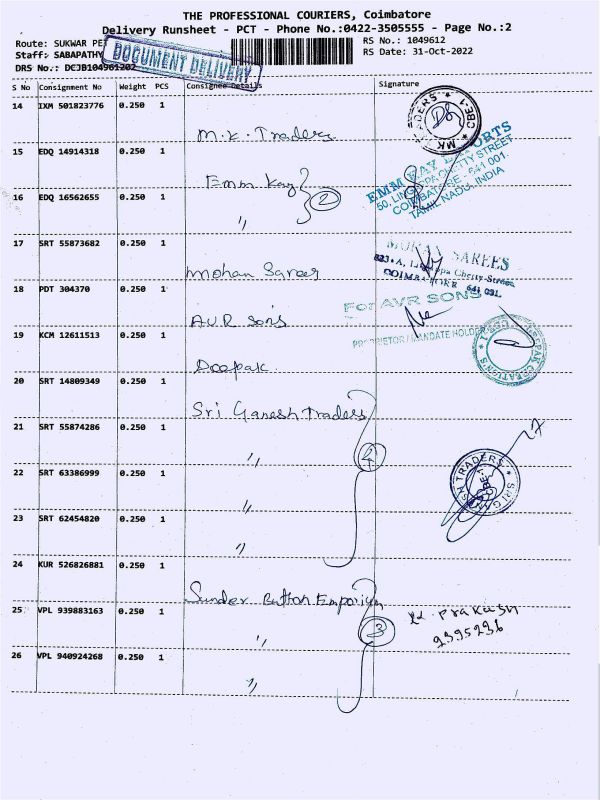 THE PROFESSIONAL COURIERS, Coimbatore
Delivery Runsheet - PCT - Phone No.:0422-3505555 - Page No.:2
Route: SUKWAR PE
RS No.: 1049612
Staff: SABAPATHY
RS Date: 31-Oct-2022
DOCUMENT DELIVERY
DRS No.: DCJB104961202
S No Consignment No Weight PCS Consignee Details Signature
14 IXM 501823776 0.250 1
M.K. Traders
MK TRADERS * CBE-1 *
15 EDQ 14914318 0.250 1
Emm Kay
EMM KAY EXPORTS
50, LINGAPPA CHETTY STREET
COIMBATORE - 641 001.
TAMIL NADU, INDIA
16 EDQ 16562655 0.250 1
2
"
17 SRT 55873682 0.250 1
Mohan Sarees
SAREES
Chetty Street
COIMBATORE 641 001.
18 PDT 304370 0.250 1
AVR Sons
For AVR SONS
PROPRIETOR / MANDATE HOLDER
19 KCM 12611513 0.250 1
Deepak
DEEPAK CREATIONS
20 SRT 14809349 0.250 1
Sri Ganesh Traders
21 SRT 55874286 0.250 1
4
"
22 SRT 63386999 0.250 1
"
SRI GANESH TRADERS
23 SRT 62454820 0.250 1
"
24 KUR 526826881 0.250 1
Sunder Button Emporium
25 VPL 939883163 0.250 1
3
"
Prakash
2395236
26 VPL 940924268 0.250 1
"